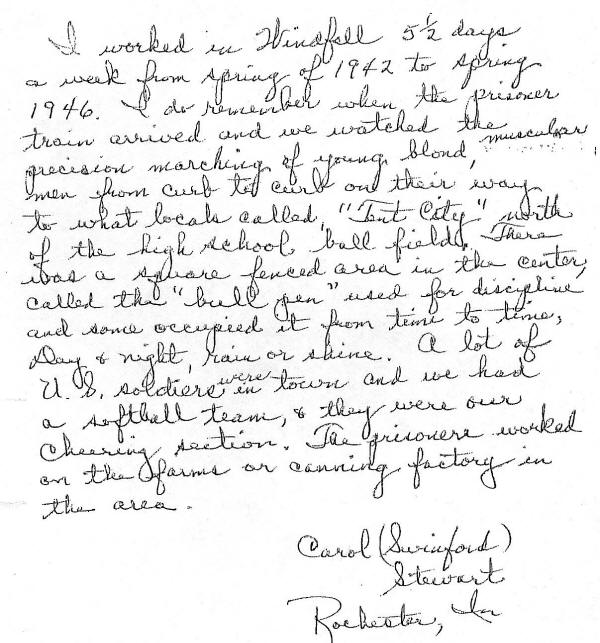 I worked in Windfall 5½ days
a week from spring of 1942 to spring
1946. I do remember when the prisoner
train arrived and we watched the
precision marching of young, blond, muscular
men from curb to curb on their way
to what locals called, "Tent City" north
of the high school ball field. There
was a square fenced area in the center,
called the "bull pen" used for discipline
and some occupied it from time to time,
Day & night, rain or shine. A lot of
U.S. soldiers were in town and we had
a softball team, & they were our
cheering section. The prisoners worked
on the farms or canning factory in
the area.
Carol (Swinford)
Stewart
Rochester, In